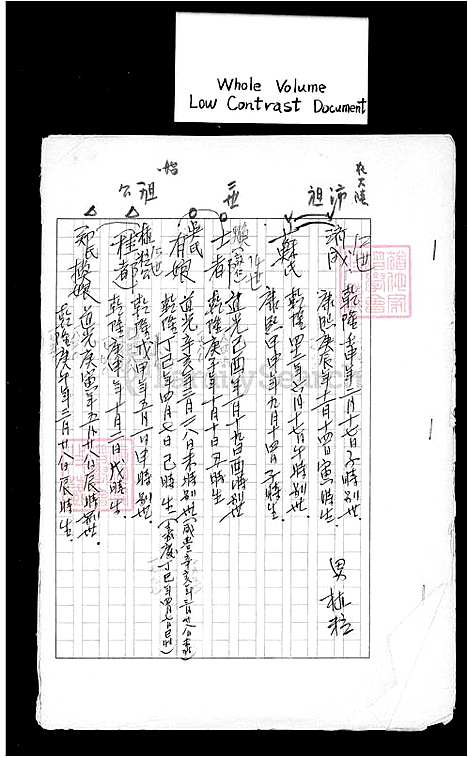 Whole Volume
Low Contrast Document
在大陸
沛
祖
三世
始
祖
公
流成
乾隆壬申年二月十七日子時別世.
康熙庚辰年十一月十四日寅時生.
男 植 粒
蘇氏
乾隆四二年六月十七日午時別世.
康熙甲申年九月十四日子時生.
14世
士都
道光己酉年一月十九日酉時別世
乾隆庚子年十月十日子時生
吳氏
有娘
道光辛亥年三月二八日未時別世(咸豐辛亥年三月廿八日未時)
乾隆丁巳年四月七日巳時生(嘉慶丁巳年四月七日巳時)
15世
桂都
乾隆戊申年五月一日申時別世.
乾隆庚申年十月二日戌時生.
鄭氏桃娘
道光庚寅年五月廿八日辰時別世.
乾隆庚午年三月廿八日辰時生.
FamilySearch